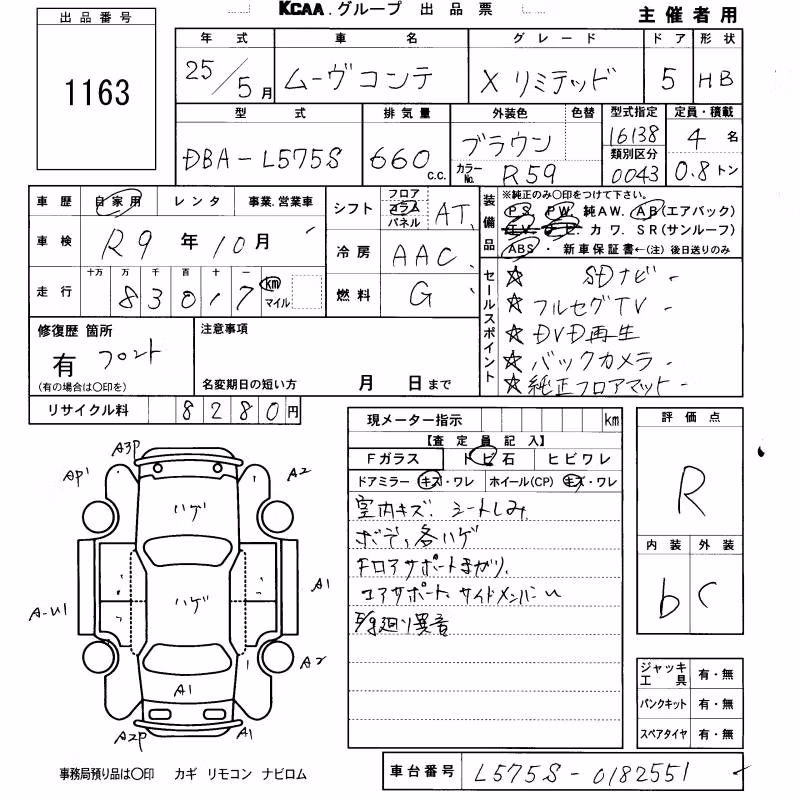 KCAA.グループ 出品票
主催者用
出品番号
1163
年式 車名 グレード ドア 形状
25/5月 ムーヴコンテ Xリミテッド 5 HB
型式 排気量 外装色 色替 型式指定 定員・積載
DBA-L575S 660 c.c. ブラウン 16138 4名
カラーNo. R59 類別区分 0043 0.8トン
車歴 自家用 レンタ 事業.営業車
車検 R9年10月
走行 十万 万 千 百 十 一
83017 km マイル
シフト フロア コラム パネル AT
冷房 AAC
燃料 G
装備品
※純正のみ〇印をつけて下さい。
PS PW 純AW. AB(エアバック)
TV. ナビ. カワ. SR(サンルーフ)
ABS ・ 新車保証書←(注)後日送りのみ
セールスポイント
☆ SDナビ -
☆ フルセグTV -
☆ DVD再生
☆ バックカメラ -
☆ 純正フロアマット -
修復歴 箇所
有 フロント
(有の場合は〇印を)
注意事項
名変期日の短い方 月 日まで
リサイクル料 8280円
現メーター指示 km
【査定員記入】
Fガラス トビ石 ヒビワレ
ドアミラー キズ・ワレ ホイール(CP) キズ・ワレ
室内キズ. シートしみ
ボデ, 各ハゲ
Fロアサポートまがり.
コアサポート. サイドメンバーu
F/g廻り異音
評価点
R
内装 外装
b C
ジャッキ工具 有・無
パンクキット 有・無
スペアタイヤ 有・無
A3P
AP1
A2
ハゲ
ハゲ
A1
A-U1
A2
A1
A2P
A1
事務局預り品は〇印 カギ リモコン ナビロム
車台番号 L575S-0182551